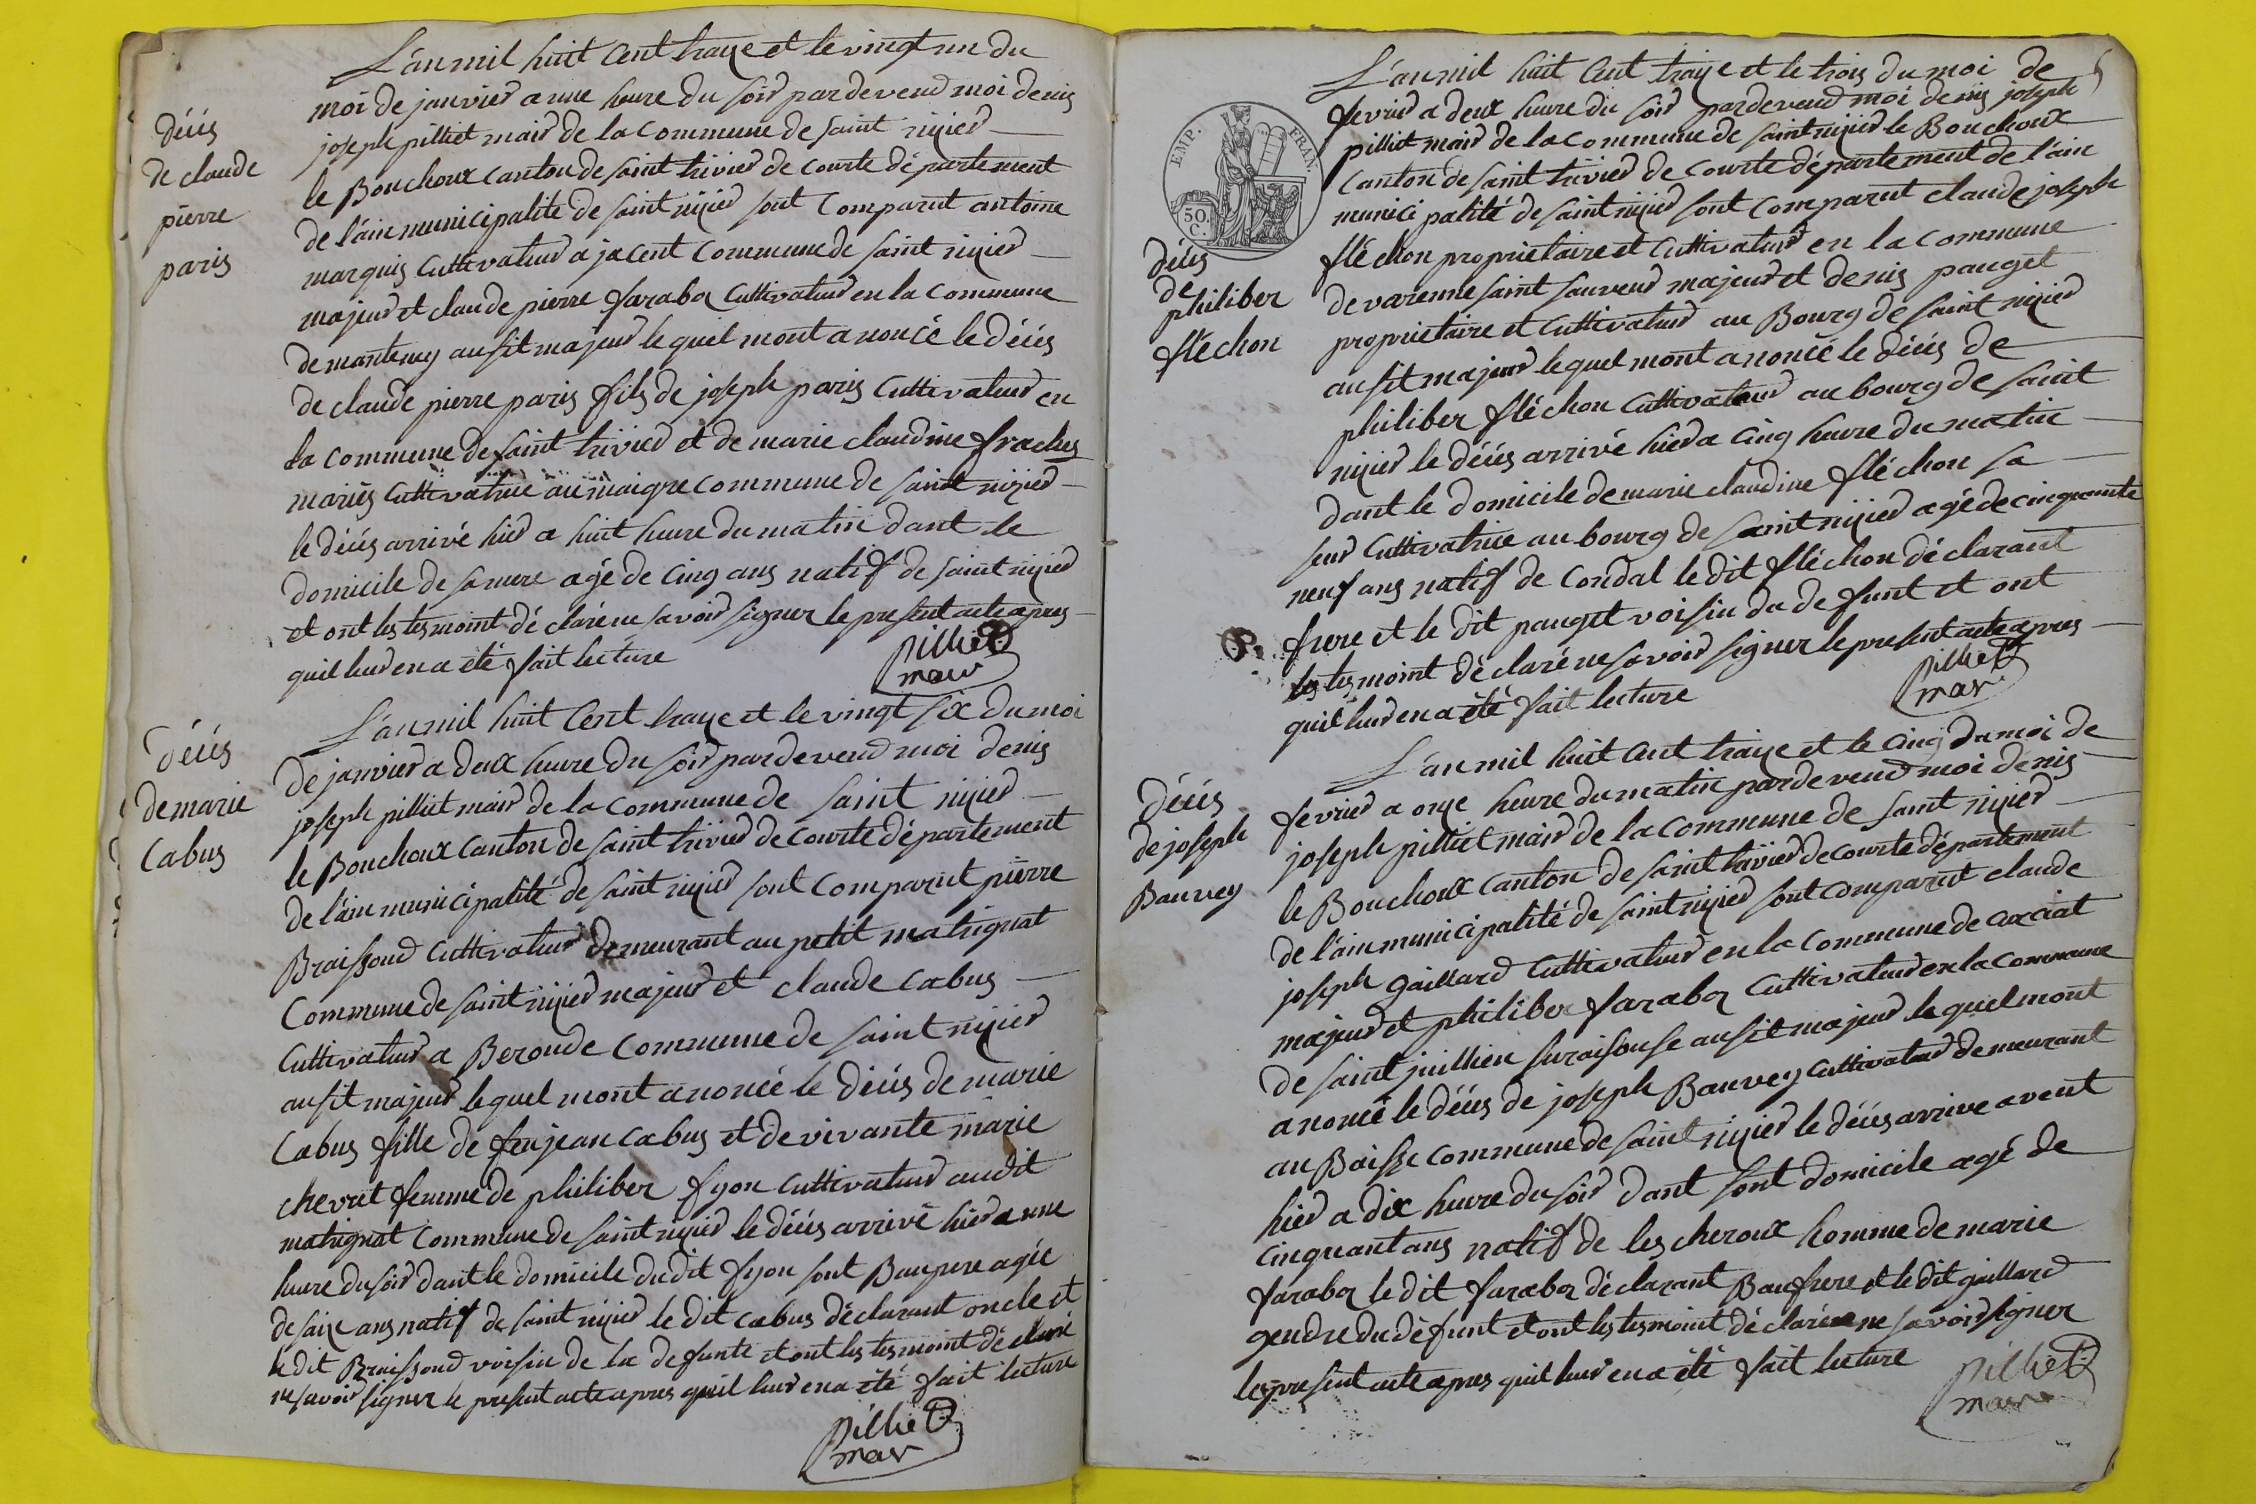 L'an mil huit Cent traize et le vingt un du
moi de janvier a une heure du soir pardevend moi denis
joseph pilliet mair de la Commune de saint nizier
le Bouchoux Canton de saint trivier de Courte département
de l'ain municipalité de saint nizier sont Comparut antoine
marquis Cultivateur a jacent Commune de saint nizier
majeur et claude pierre farabox Cultivateur en la Commune
de manteney ausit majeur lequel mont anoncé le déces
de claude pierre paris fils de joseph paris Cultivateur en
la Commune de saint trivier et de marie claudine frachet
mariés Cultivatrice au maigre commune de saint nizier
le déces arrivé hier a huit heure du matin dant le
domicile de sa mere agé de Cinq ans natif de saint nizier
et ont les tesmoint déclaré ne savoir signer le present acte apres
quil leur en a été fait lecture
pilliet
mair
déces
de claude
pierre
paris
L'an mil huit Cent traize et le vingt six du moi
de janvier a deux heure du soir pardevend moi denis
joseph pilliet mair de la Commune de saint nizier
le Bouchoux Canton de saint trivier de Courte département
de l'ain municipalité de saint nizier sont Comparut pierre
Braissoud Cultivateur demeurant au petit matrignat
Commune de saint nizier majeur et claude Cabus
Cultivateur a Beroude Commune de saint nizier
ausit majeur lequel mont anoncé le déces de marie
Cabus fille de feu jean Cabus et de vivante marie
chevrat femme de philiber fyon Cultivateur audit
matrignat Commune de saint nizier le déces arrivé hier a une
heure du soir dant le domicile dudit fyon sont Baupere agée
de saize ans natif de saint nizier le dit Cabus déclarant oncle et
le dit Braissoud voisin de la defunte et ont les tesmoint déclaré
ne savoir signer le present acte apres quil leur en a été fait lecture
pilliet
mair
déces
de marie
Cabus
L'an mil huit Cent traize et le trois du moi de
fevrier a deux heure du soir pardevend moi denis joseph
pilliet mair de la Commune de saint nizier le Bouchoux
Canton de saint trivier de Courte département de l'ain
municipalité de saint nizier sont Comparut claude joseph
fléchon proprietaire et Cultivateur en la Commune
de varenne saint sauveur majeur et denis pauget
proprietaire et Cultivateur au Bourg de saint nizier
ausit majeur lequel mont anoncé le déces de
philiber fléchon Cultivateur au bourg de saint
nizier le déces arrivé hier a Cinq heure du matin
dant le domicile de marie claudine fléchon sa
seur Cultivatrice au bourg de saint nizier agé de cinquante
neuf ans natif de Condal le dit fléchon déclarant
frere et le dit pauget voisin du defunt et ont
les tesmoint déclaré ne savoir signer le present acte apres
quil leur en a été fait lecture
pilliet
mair
EMP. FRAN.
50.
C.
déces
de
philiber
fléchon
L'an mil huit Cent traize et le Cinq du moi de
fevrier a onze heure du matin pardevend moi denis
joseph pilliet mair de la Commune de saint nizier
le Bouchoux Canton de saint trivier de Courte département
de l'ain municipalité de saint nizier sont Comparut claude
joseph gaillard Cultivateur en la Commune de coxciat
majeur et philiber farabox Cultivateur en la commune
de saint juillien suraisouse ausit majeur lequel mont
anoncé le déces de joseph Bauvey Cultivateur demeurant
au Baisse Commune de saint nizier le déces arrive avent
hier a dix heure du soir dant sont domicile agé de
Cinquant ans natif de les cheroux homme de marie
farabox le dit farabox déclarant Baufrere et le dit gaillard
gendre du défunt et ont les tesmoint déclaré ne savoir signer
le present acte apres quil leur en a été fait lecture
pilliet
mair
déces
de joseph
Bauvey